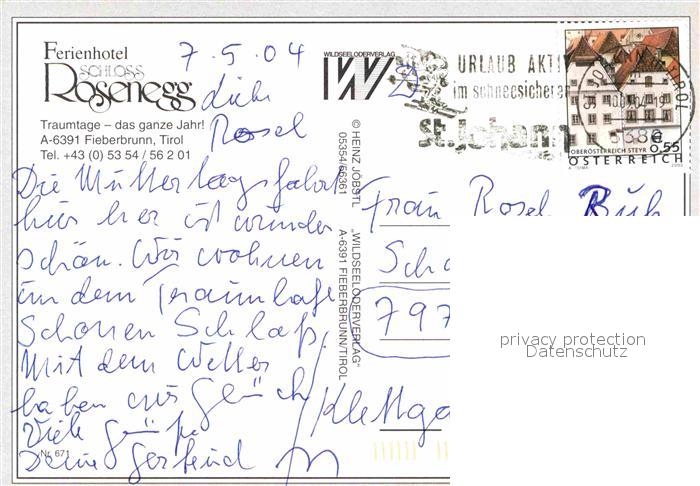 Ferienhotel
SCHLOSS
Rosenegg
Traumtage – das ganze Jahr!
A-6391 Fieberbrunn, Tirol
Tel. +43 (0) 53 54 / 56 2 01
7.5.04
Liebe
Rosel
Die Muttertagsfahrt
hier her ist wunder
schön. Wir wohnen
in dem Traumhaft
Schönen Schloß.
Mit dem Wetter
haben wir Glück
Viele Grüße
Deine
Nr. 671
WILDSEELODERVERLAG
W
© HEINZ JÖBSTL
05354/56361
„WILDSEELODERVERLAG"
A-6391 FIEBERBRUNN/TIROL
URLAUB AKTI
im schneesicheren
St. Johann
0,55
OBERÖSTERREICH STEYR
ÖSTERREICH
Frau Rosel
797
Klettga
privacy protection
Datenschutz